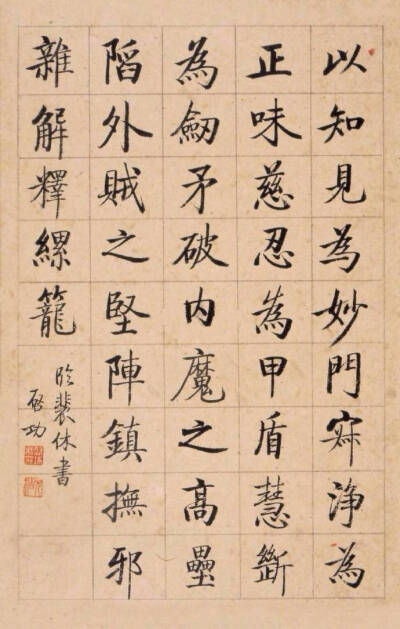 以知見為妙門寂淨為
正味慈忍為甲盾慧斷
為劒矛破内魔之高壘
陷外賊之堅陣鎮撫邪
雜解釋縲籠
臨裴休書
啟功